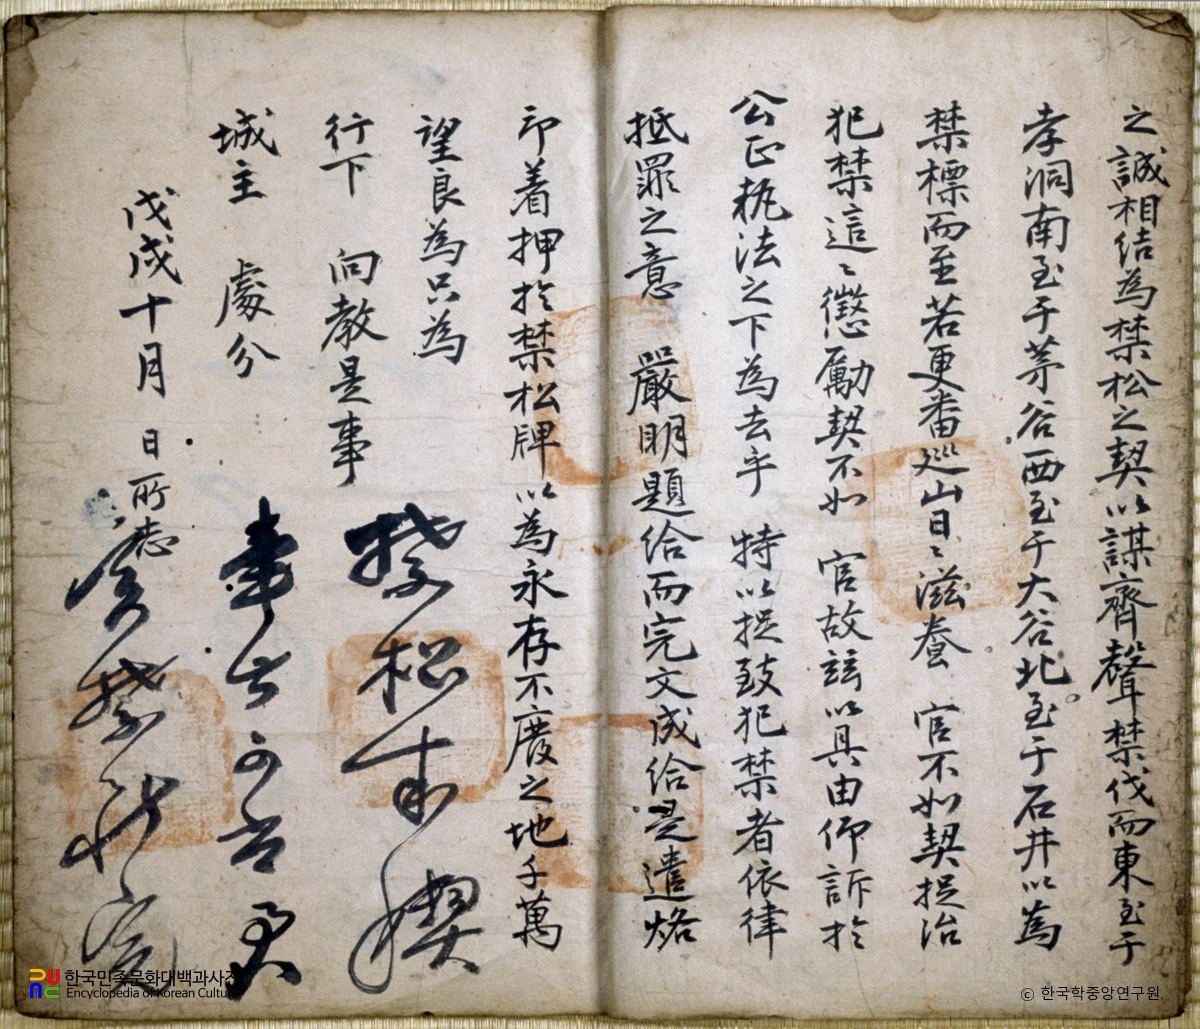 之誠相結為禁松之契以謀齊聲禁伐而東至于
孝洞南至于茅谷西至于大谷北至于石井以為
禁標而至若更番巡山日〻滋養 官不如契捉治
犯禁這〻懲勵契不如 官故玆以具由仰訴於
公正執法之下為去乎 特以捉致犯禁者依律
抵罪之意 嚴明題給而完文成給是遣烙
印着押於禁松牌以為永存不廢之地千萬
望良為只為
行下 向教是事
城主 處分
戊戌十月 日所志
禁松
契
한국민족문화대백과사전
Encyclopedia of Korean Culture
© 한국학중앙연구원.